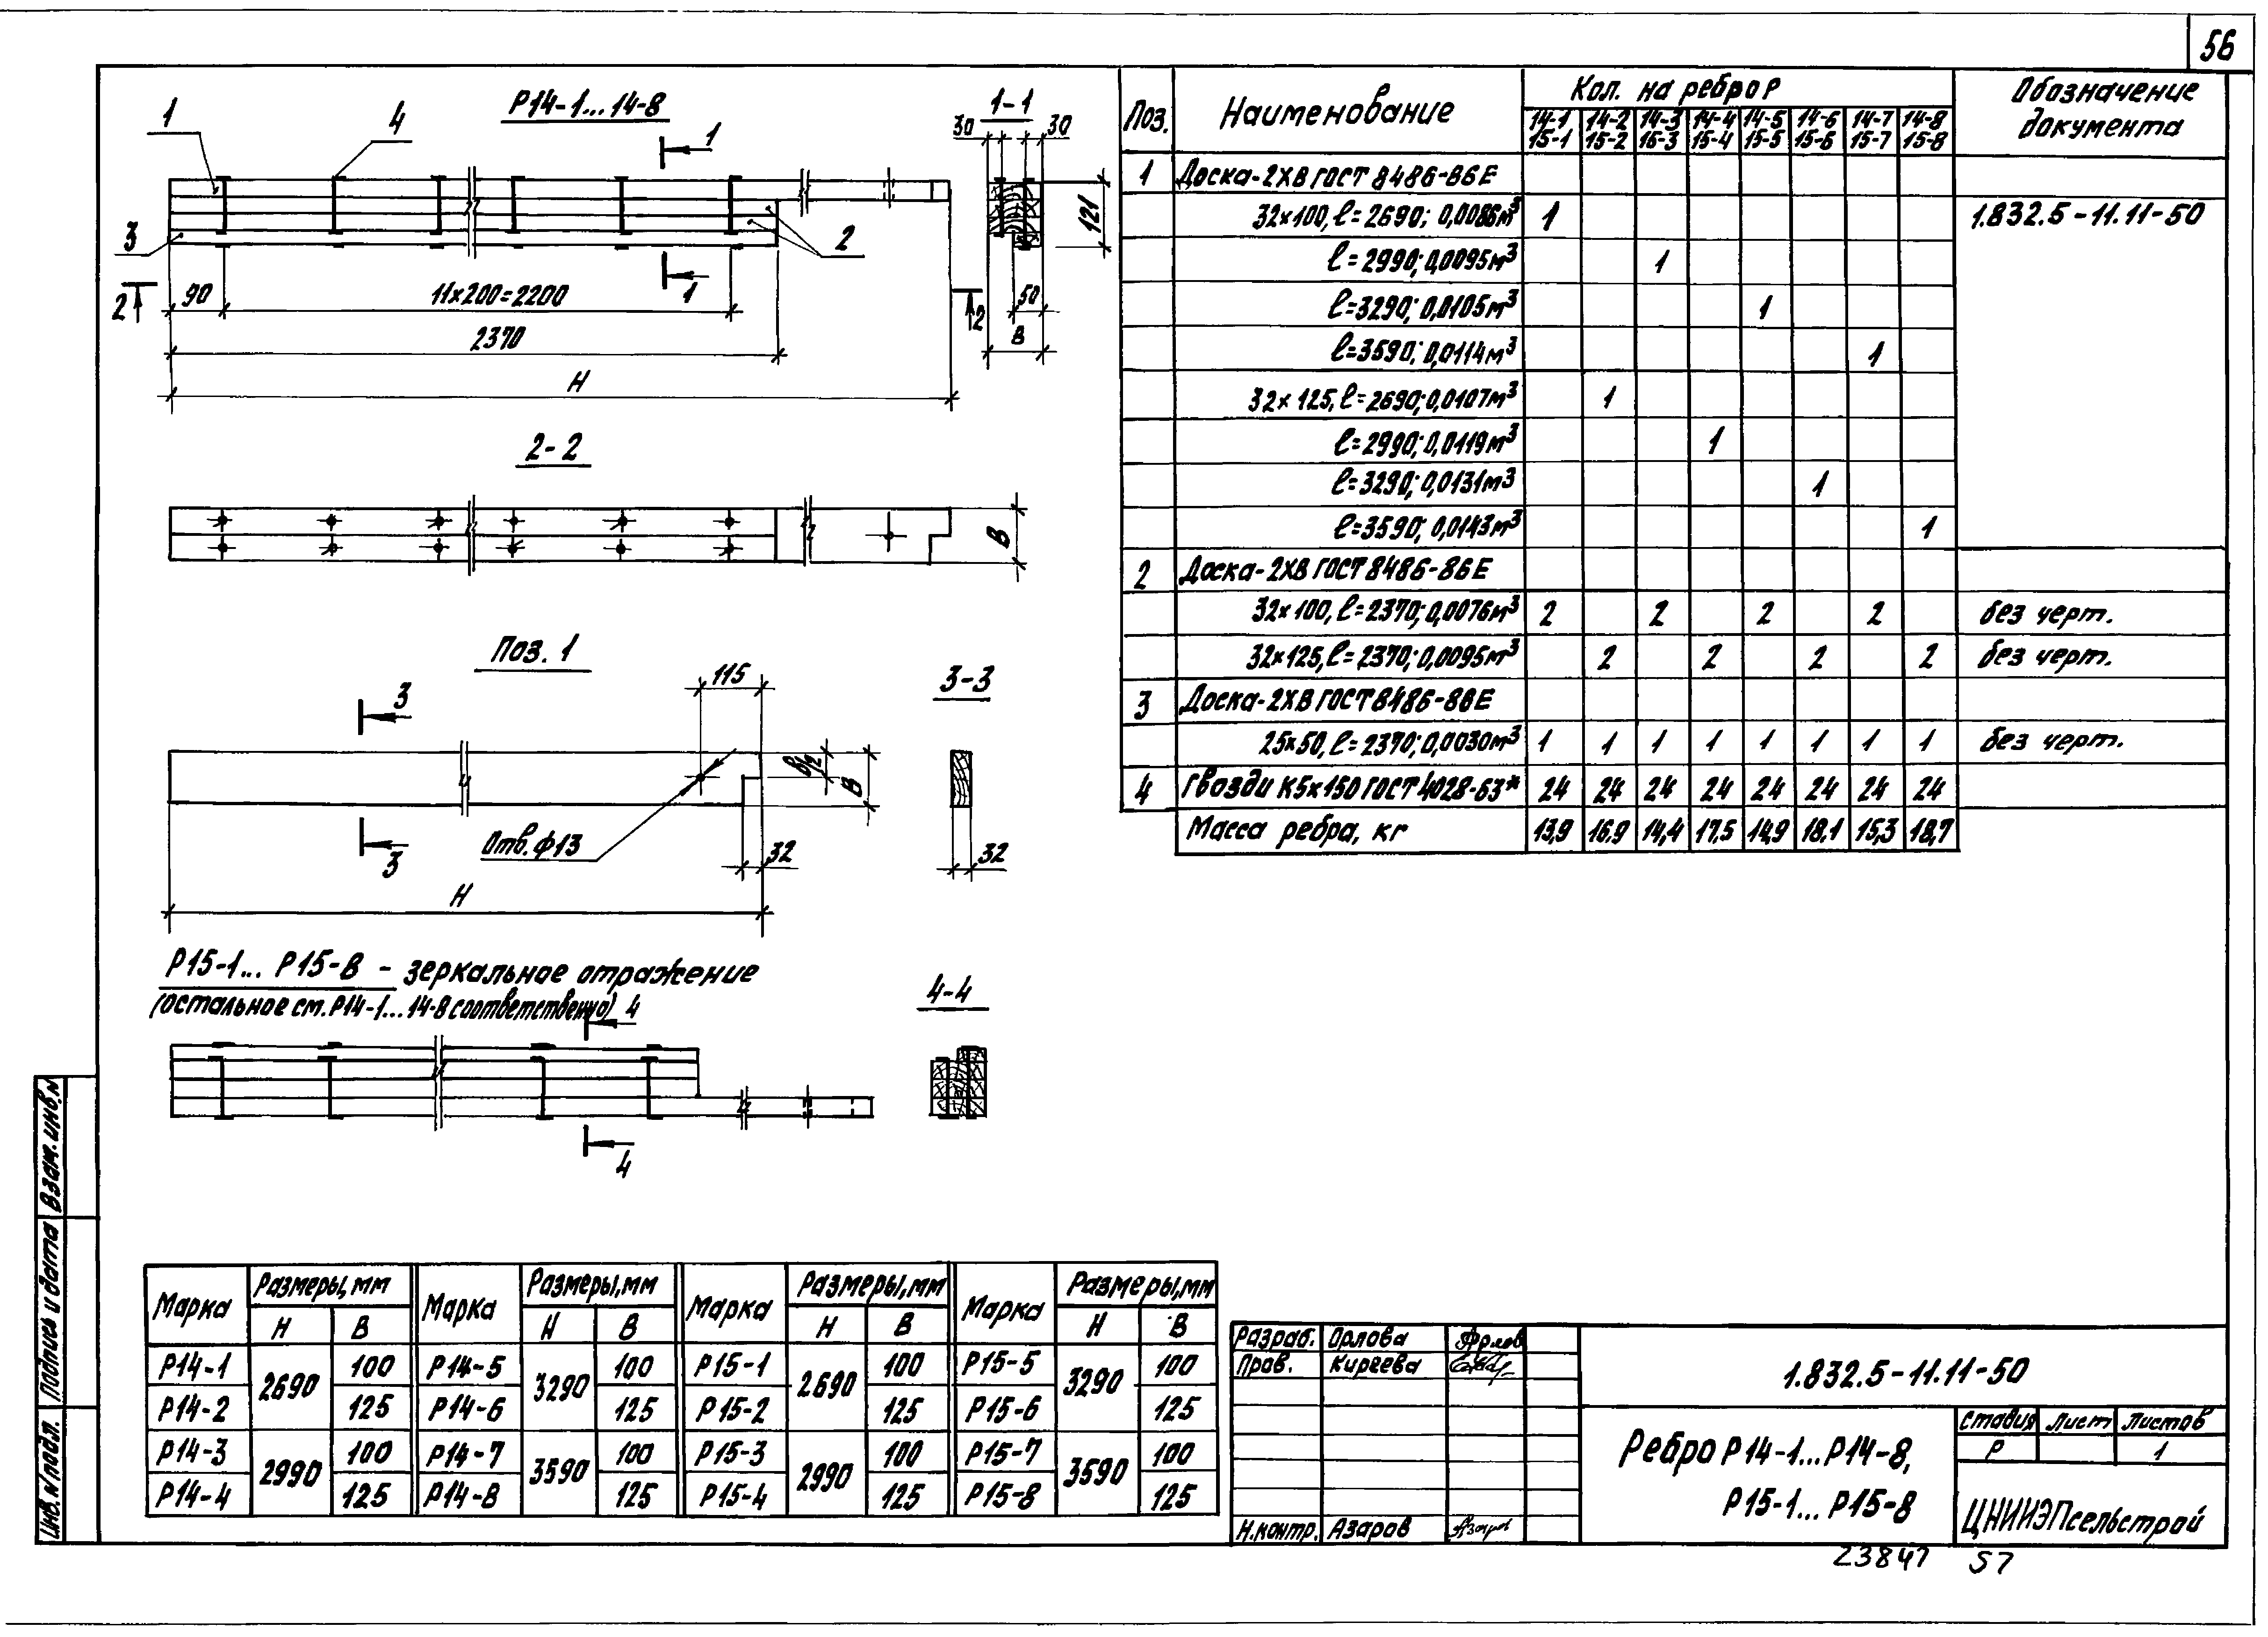 56
Р14-1... 14-8
1
4
1
3
2
1
90
11х200=2200
2370
Н
2
2
1-1
30
30
121
50
В
2-2
В
Поз. 1
3
3
115
В/2
В
Отв. ф13
32
Н
3-3
32
Р15-1... Р15-8 - зеркальное отражение
(остальное см. Р14-1... 14-8 соответственно)
4
4
4-4
Поз.
Наименование
Кол. на ребро Р
Обозначение документа
14-1 14-2 14-3 14-4 14-5 14-6 14-7 14-8
15-1 15-2 15-3 15-4 15-5 15-6 15-7 15-8
1 Доска-2ХВ ГОСТ 8486-86Е
32х100, ℓ=2690; 0,0086м³ 1 1.832.5-11.11-50
ℓ=2990; 0,0095м³ 1
ℓ=3290; 0,0105м³ 1
ℓ=3590; 0,0114м³ 1
32х125, ℓ=2690; 0,0107м³ 1
ℓ=2990; 0,0119м³ 1
ℓ=3290; 0,0131м³ 1
ℓ=3590; 0,0143м³ 1
2 Доска-2ХВ ГОСТ 8486-86Е
32х100, ℓ=2370; 0,0076м³ 2 2 2 2 без черт.
32х125, ℓ=2370; 0,0095м³ 2 2 2 2 без черт.
3 Доска-2ХВ ГОСТ 8486-86Е
25х50, ℓ=2370; 0,0030м³ 1 1 1 1 1 1 1 1 без черт.
4 Гвозди К5х150 ГОСТ 4028-63* 24 24 24 24 24 24 24 24
Масса ребра, кг 13,9 16,9 14,4 17,5 14,9 18,1 15,3 18,7
Марка Размеры, мм Марка Размеры, мм Марка Размеры, мм Марка Размеры, мм
Н В Н В Н В Н В
Р14-1 2690 100 Р14-5 3290 100 Р15-1 2690 100 Р15-5 3290 100
Р14-2 125 Р14-6 125 Р15-2 125 Р15-6 125
Р14-3 2990 100 Р14-7 3590 100 Р15-3 2990 100 Р15-7 3590 100
Р14-4 125 Р14-8 125 Р15-4 125 Р15-8 125
Разраб. Орлова
Пров. Киреева
Н.контр. Азаров
1.832.5-11.11-50
Ребро Р14-1... Р14-8,
Р15-1... Р15-8
Стадия Лист Листов
Р 1
ЦНИИЭПсельстрой
23847 57
Взам. инв. N
Подпись и дата
Инв. N подл.